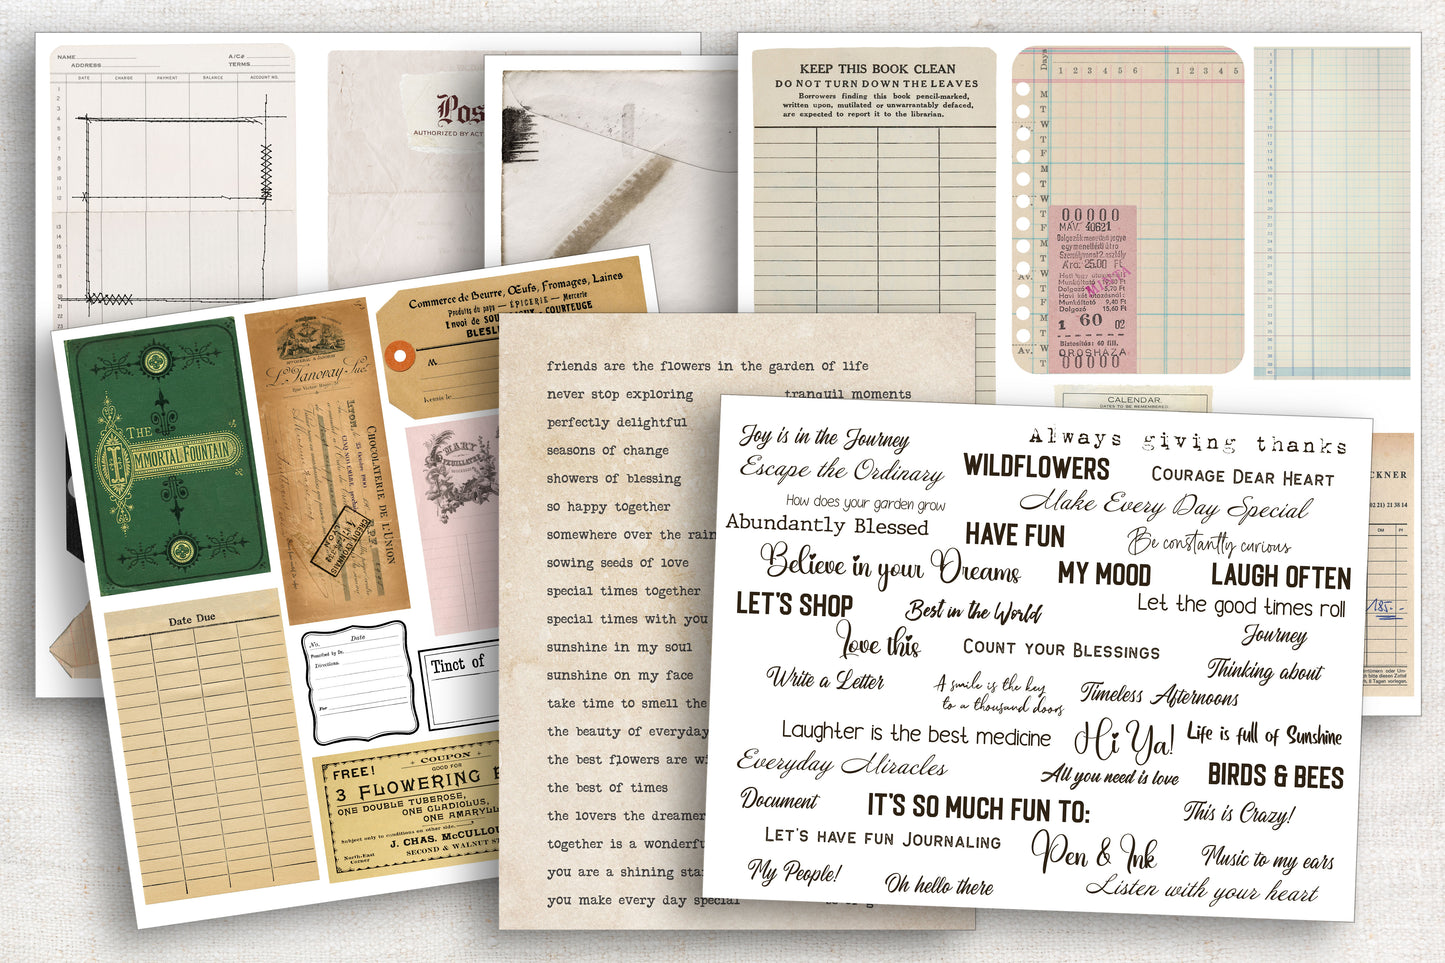 NAME
ADDRESS
A/C#
TERMS
DATE CHARGE PAYMENT BALANCE ACCOUNT NO.
Pos
AUTHORIZED BY ACT
KEEP THIS BOOK CLEAN
DO NOT TURN DOWN THE LEAVES
Borrowers finding this book pencil-marked,
written upon, mutilated or unwarrantably defaced,
are expected to report it to the librarian.
Days
1 2 3 4 5 6 1 2 3 4 5
M
T
W
T
F
M
T
W
T
F
M
T
W
T
F
Av.
M
T
W
T
F
M
T
W
T
Av.
00000
MÁV. 40621
Dolgozók menetérti jegye
egy menettérti útra
Személyvonat 2. osztály
Ára: 25.00 Ft
MINTA
Munkáltató
Dolgozó 5,70 Ft
Havi két utazásnál:
Munkáltató 9,40 Ft
Dolgozó 15,60 Ft
1 60 02
Biztosítás: 60 fill.
OROSHÁZA
00000
CALENDAR
DATES TO BE REMEMBERED
CKNER
02 21) 21 38 14
DM
185.-
THE
IMMORTAL FOUNTAIN
CHOCOLATERIE DE L'UNION
LYON
Commerce de Beurre, Œufs, Fromages, Laines
Produits du pays — EPICERIE — Mercerie
Envoi de SOU
COURTEUGE
BLESL
M
MARY
Date Due
No. Date
Prescribed by Dr.
Directions:
For
Tinct of
COUPON
FREE! GOOD FOR
3 FLOWERING
ONE DOUBLE TUBEROSE,
ONE GLADIOLUS,
ONE AMARYLL
Subject only to conditions on other side.
J. CHAS. McCULLOU
North-East
Corner
SECOND & WALNUT ST
friends are the flowers in the garden of life
never stop exploring
tranquil moments
perfectly delightful
seasons of change
showers of blessing
so happy together
somewhere over the rain
sowing seeds of love
special times together
special times with you
sunshine in my soul
sunshine on my face
take time to smell the
the beauty of everyday
the best flowers are wi
the best of times
the lovers the dreamer
together is a wonderfu
you are a shining sta
you make every day special
Joy is in the Journey
Always giving thanks
Escape the Ordinary
WILDFLOWERS
COURAGE DEAR HEART
How does your garden grow
Make Every Day Special
Abundantly Blessed
HAVE FUN
Be constantly curious
Believe in your Dreams
MY MOOD
LAUGH OFTEN
LET'S SHOP
Best in the World
Let the good times roll
Love this
COUNT YOUR BLESSINGS
Journey
Write a Letter
A smile is the key
to a thousand doors
Thinking about
Timeless Afternoons
Laughter is the best medicine
Hi Ya!
Life is full of Sunshine
Everyday Miracles
All you need is love
BIRDS & BEES
Document
IT'S SO MUCH FUN TO:
This is Crazy!
LET'S HAVE FUN JOURNALING
Pen & Ink
Music to my ears
My People!
Oh hello there
Listen with your heart